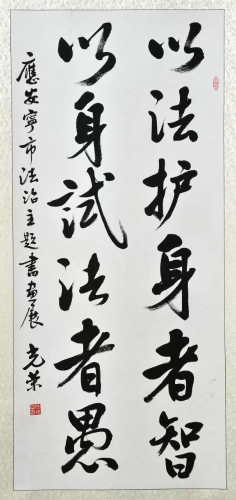 以法护身者智
以身試法者愚
應安寧市法治主題書画展 光荣